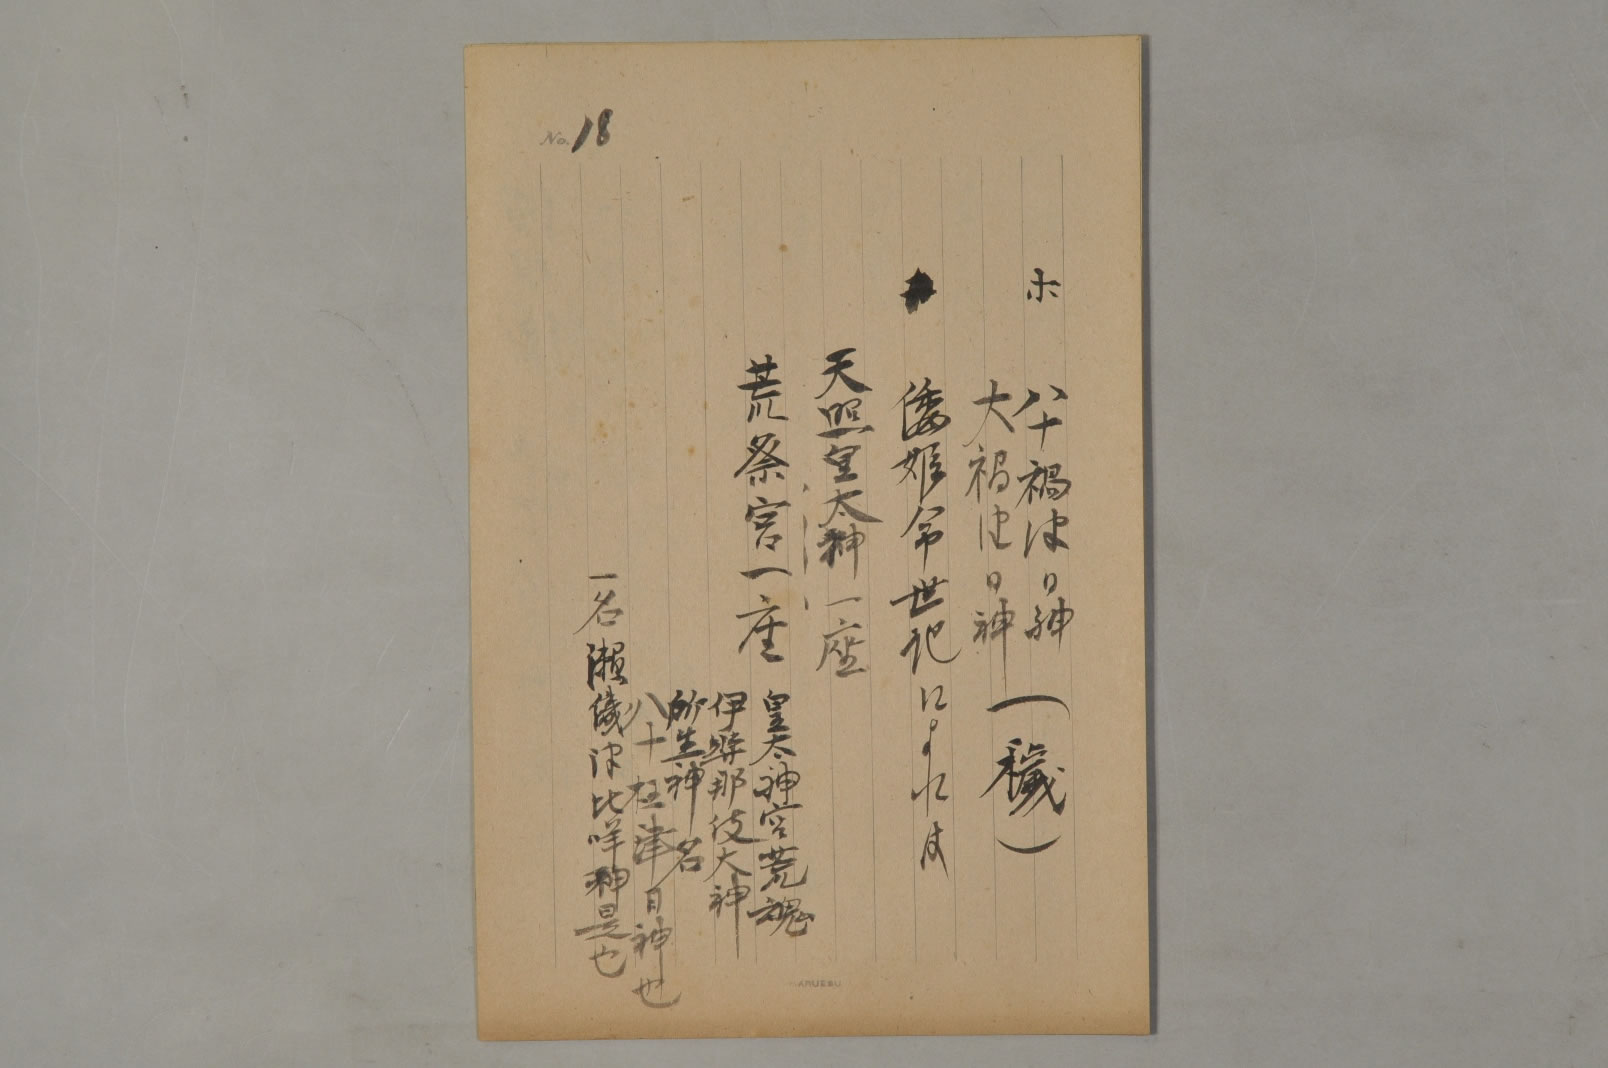 No. 18
ホ 八十禍津日神
大禍津日神 （穢）
倭姫命世記によれば
天照皇太神一座
荒祭宮一座
皇太神宮荒魂
伊弉那伎大神
所生神名
八十枉津日神也
一名瀬織津比咩神是也
MARUEBU